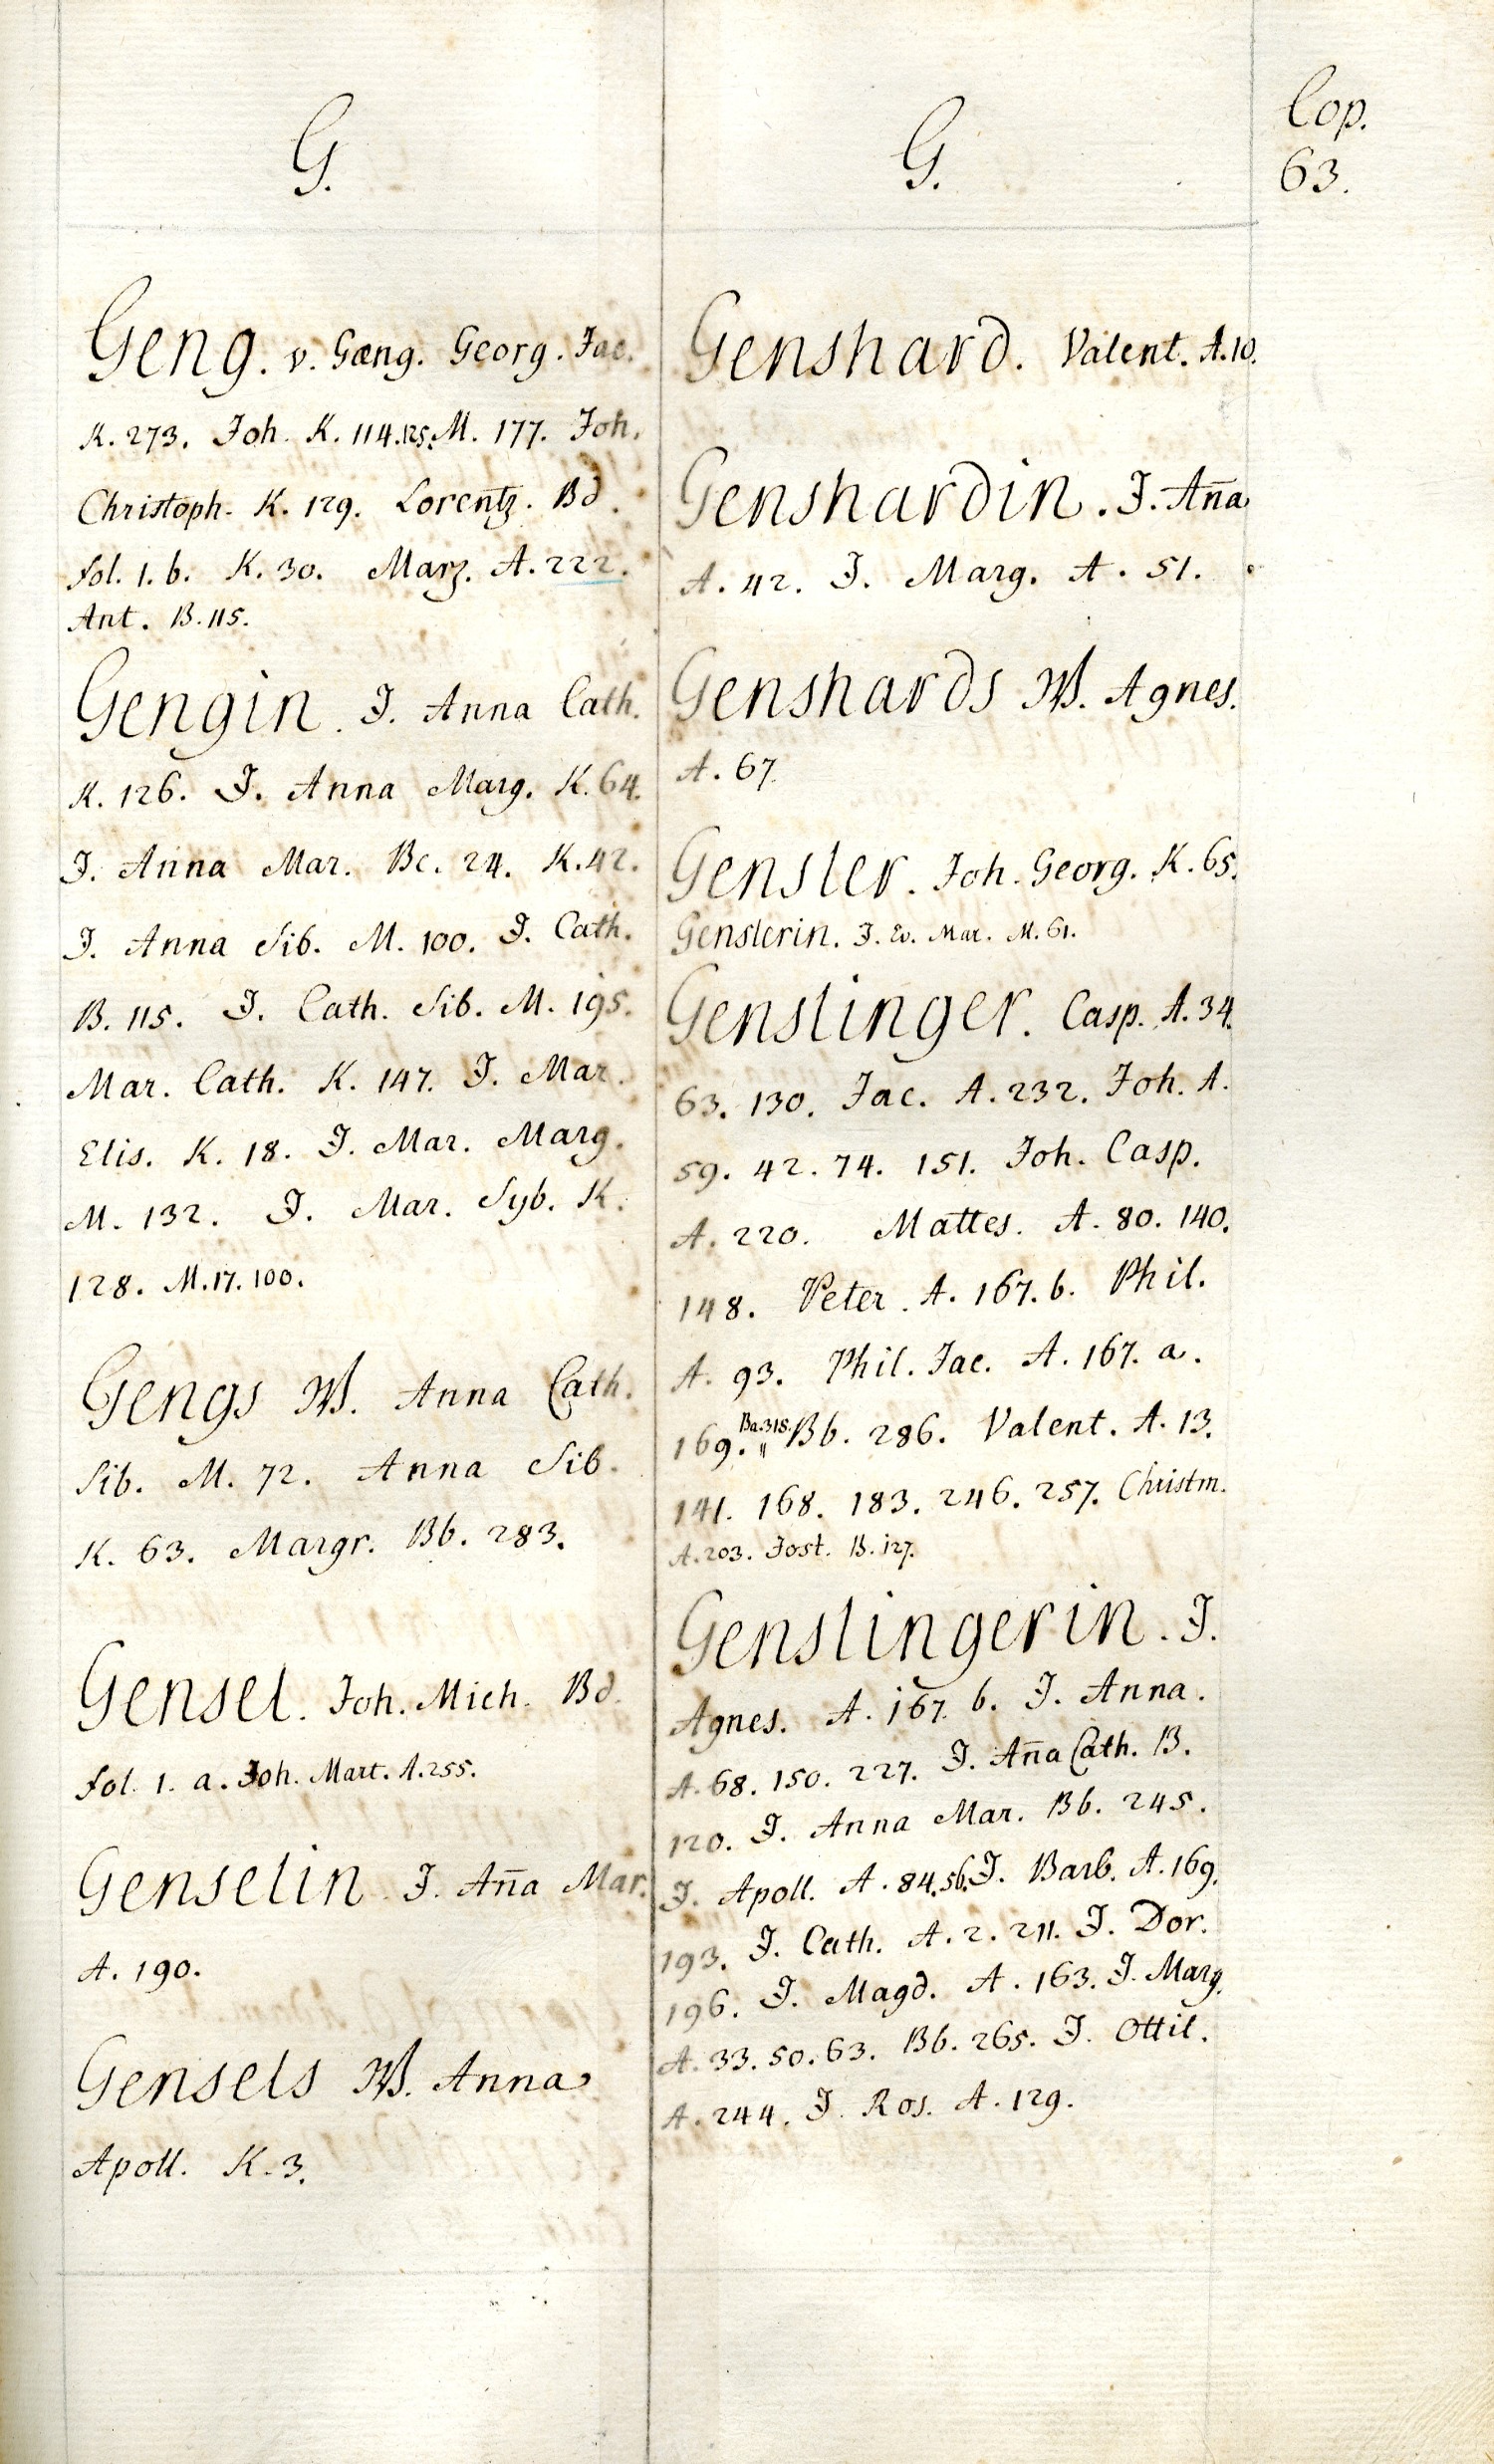 G.
Geng. v. Gæng. Georg. Jac.
K. 273. Joh. K. 114.125. M. 177. Joh.
Christoph. K. 129. Lorentz. Bd.
fol. 1. b. K. 30. Marz. A. 222.
Ant. B. 115.
Gengin. J. Anna Cath.
K. 126. J. Anna Marg. K. 64.
J. Anna Mar. Bc. 24. K. 42.
J. Anna Sib. M. 100. J. Cath.
B. 115. J. Cath. Sib. M. 195.
Mar. Cath. K. 147. J. Mar.
Elis. K. 18. J. Mar. Marg.
M. 132. J. Mar. Syb. K.
128. M. 17. 100.
Gengs W. Anna Cath.
Sib. M. 72. Anna Sib.
K. 63. Margr. Bb. 283.
Gensel. Joh. Mich. Bd.
fol. 1. a. Joh. Mart. A. 255.
Genselin J. Aña Mar.
A. 190.
Gensels W. Anna
Apoll. K. 3.
G.
Genshard. Valent. A. 10.
Genshardin. J. Aña
A. 42. J. Marg. A. 51.
Genshards W. Agnes.
A. 67.
Gensler. Joh. Georg. K. 65.
Genslerin. J. Ev. Mar. M. 61.
Genslinger. Casp. A. 34.
63. 130. Jac. A. 232. Joh. A.
59. 42. 74. 151. Joh. Casp.
A. 220. Mattes. A. 80. 140.
148. Peter. A. 167. b. Phil.
A. 93. Phil. Jac. A. 167. a.
169. Ba. 318. " Bb. 286. Valent. A. 13.
141. 168. 183. 246. 257. Christm.
A. 203. Jost. B. 127.
Genslingerin. J.
Agnes. A. 167. b. J. Anna.
A. 68. 150. 227. J. Aña Cath. B.
120. J. Anna Mar. Bb. 245.
J. Apoll. A. 84. 56. J. Barb. A. 169.
193. J. Cath. A. 2. 211. J. Dor.
196. J. Magd. A. 163. J. Marg.
A. 33. 50. 63. Bb. 265. J. Ottil.
A. 244. J. Ros. A. 129.
Cop.
63.